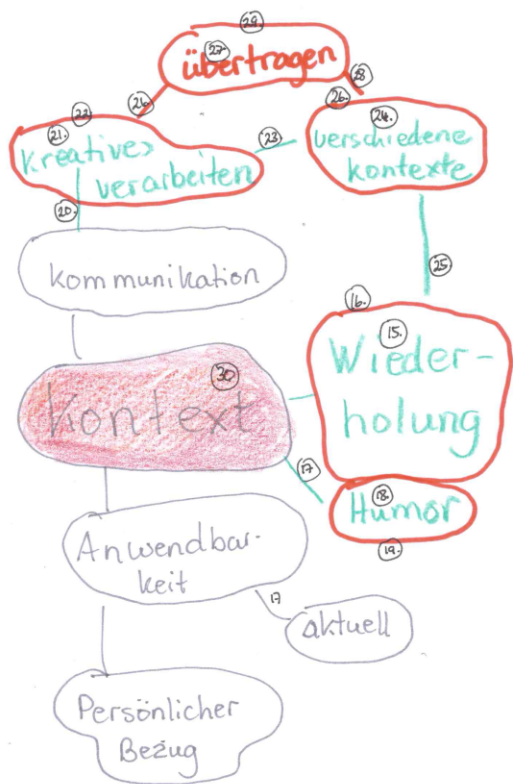 29.
27.
übertragen
26.
28
22.
21.
kreatives
verarbeiten
23.
26.
24.
verschiedene
kontexte
20.
kommunikation
25
16.
15.
Wieder-
holung
30
Kontext
17
18.
Humor
19.
Anwendbar-
keit
17
aktuell
Persönlicher
Bezug